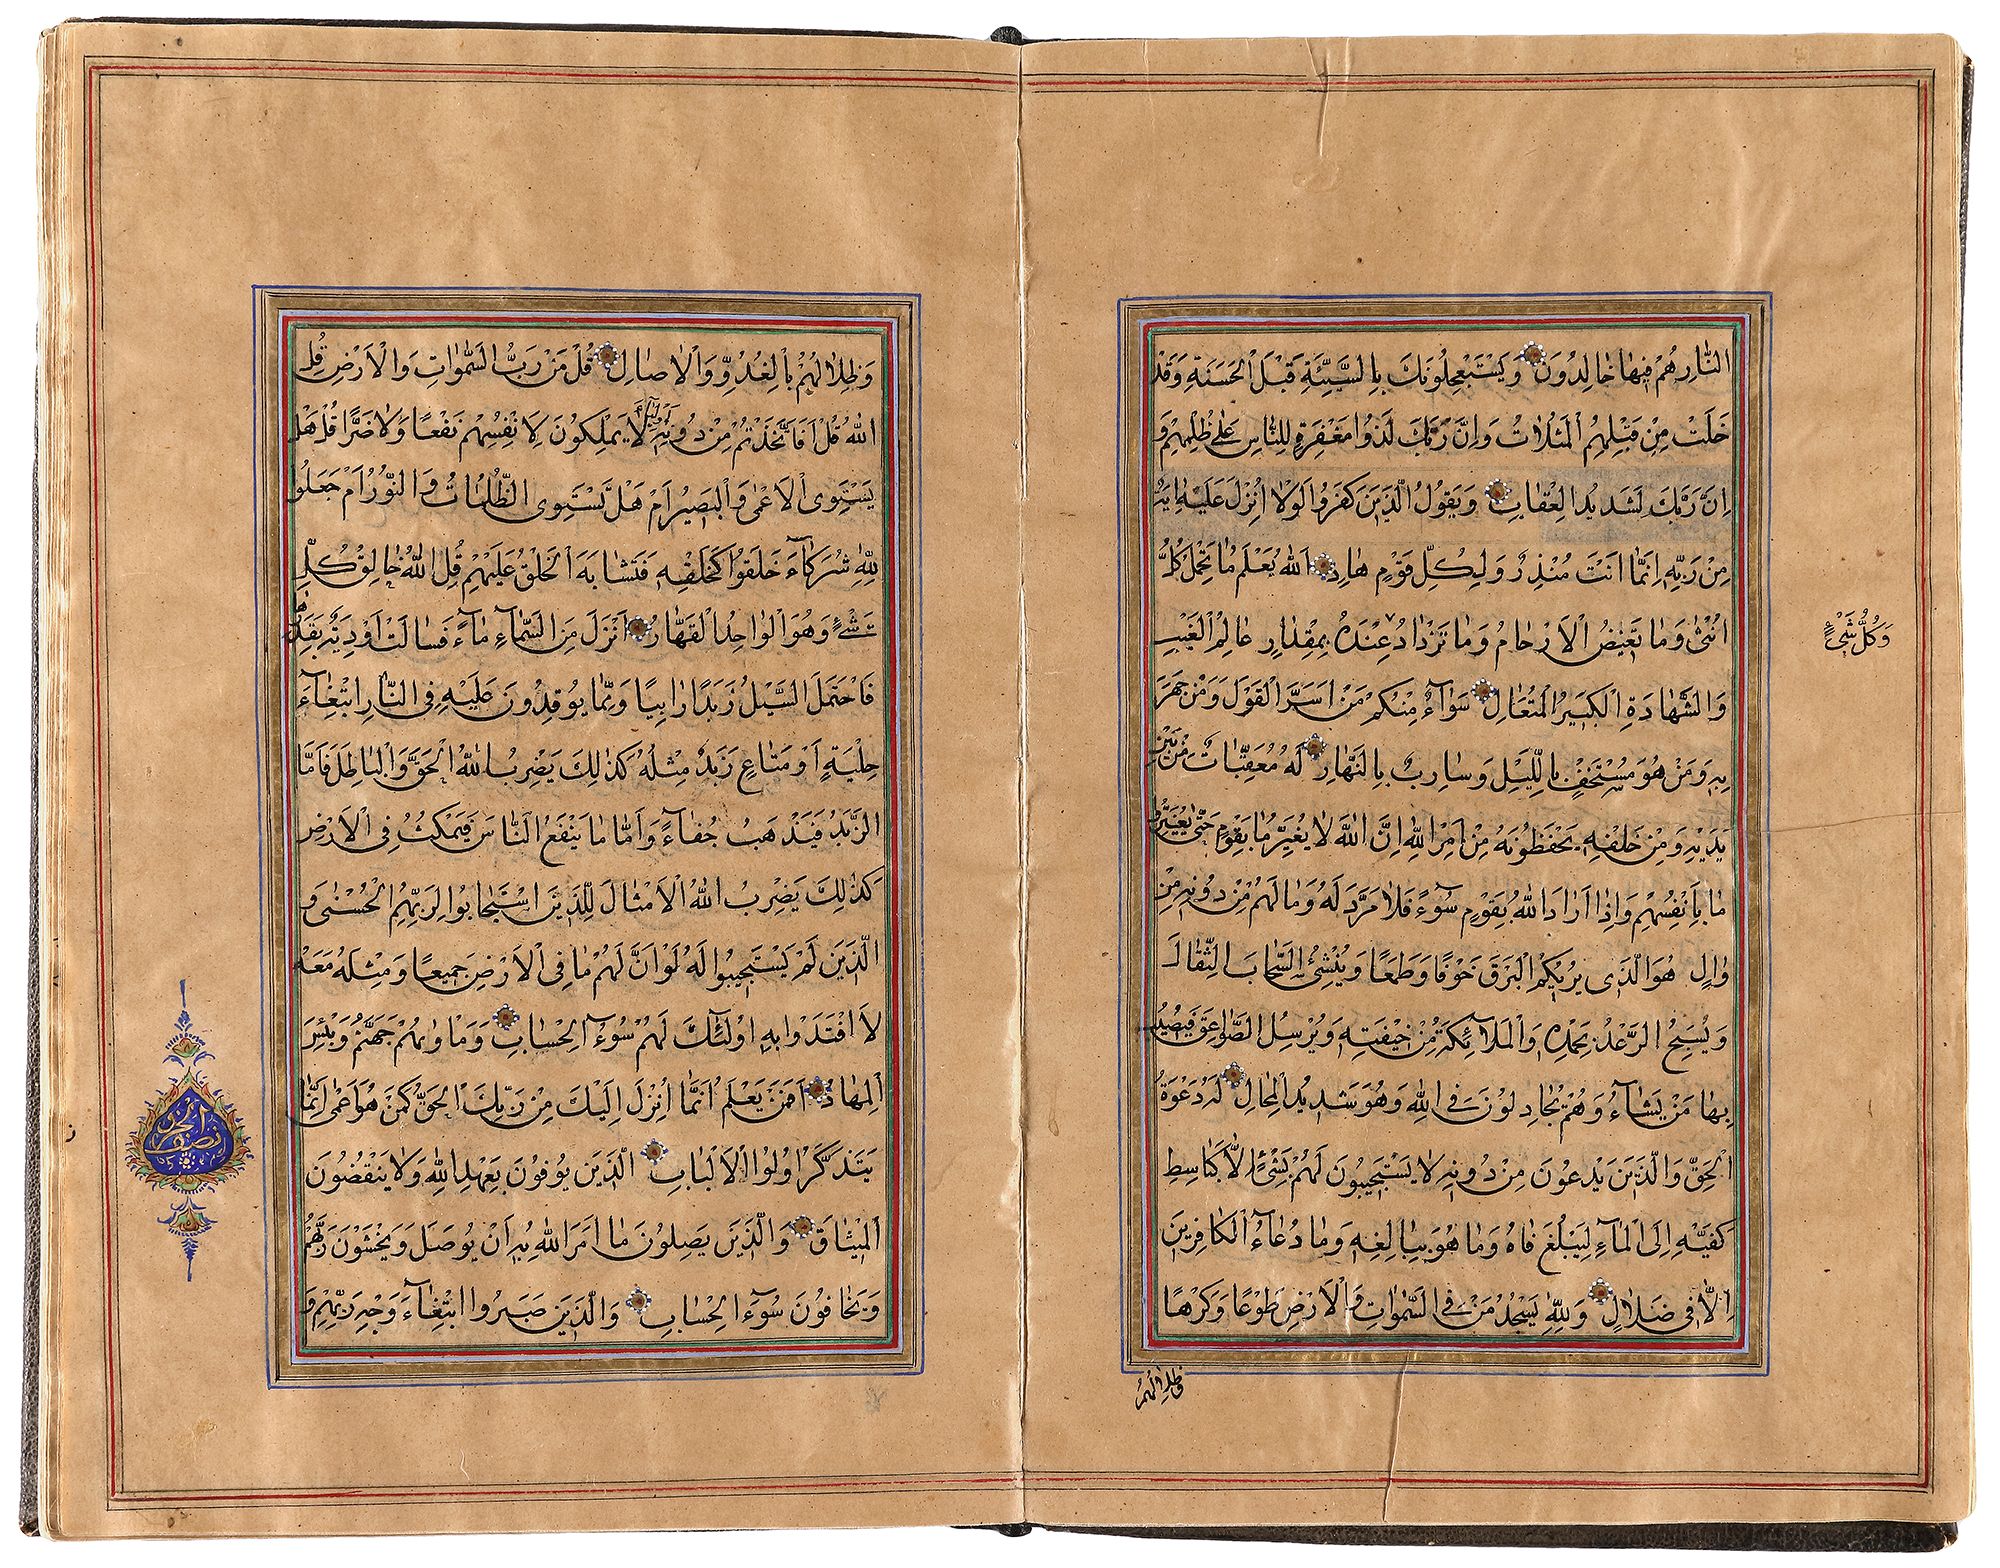 النّارِ هُمْ فيهٰا خٰالِدُونَ وَ يَسْتَعْجِلُونَكَ بِالسَّيِّئَةِ قَبْلَ الْحَسَنَةِ وَ قَدْ
خَلَتْ مِنْ قَبْلِهِمُ الْمَثُلٰاتُ وَ اِنَّ رَبَّكَ لَذُوا مَغْفِرَةٍ لِلنّاسِ عَلىٰ ظُلْمِهِمْ وَ
اِنَّ رَبَّكَ لَشَديدُ الْعِقٰابِ وَ يَقُولُ الَّذينَ كَفَرُوا لَوْلٰا اُنْزِلَ عَلَيْهِ اٰيَةٌ
مِنْ رَبِّهِ اِنَّمٰا اَنْتَ مُنْذِرٌ وَ لِكُلِّ قَوْمٍ هٰادٍ اَللّٰهُ يَعْلَمُ مٰا تَحْمِلُ كُلُّ
اُنْثىٰ وَ مٰا تَغيضُ الْاَرْحٰامُ وَ مٰا تَزْدٰادُ عِنْدَهُ بِمِقْدٰارٍ عٰالِمُ الْغَيْبِ
وَ كُلُّ شَيْءٍ
وَ الشَّهٰادَةِ الْكَبيرُ الْمُتَعٰالِ سَوٰآءٌ مِنْكُمْ مَنْ اَسَرَّ الْقَوْلَ وَ مَنْ جَهَرَ
بِهِ وَ مَنْ هُوَ مُسْتَخْفٍ بِاللَّيْلِ وَ سٰارِبٌ بِالنَّهٰارِ لَهُ مُعَقِّبٰاتٌ مِنْ بَيْنِ
يَدَيْهِ وَ مِنْ خَلْفِهِ يَحْفَظُونَهُ مِنْ اَمْرِ اللّٰهِ اِنَّ اللّٰهَ لٰا يُغَيِّرُ مٰا بِقَوْمٍ حَتّىٰ يُغَيِّرُوا
مٰا بِاَنْفُسِهِمْ وَ اِذٰا اَرٰادَ اللّٰهُ بِقَوْمٍ سُوٓءً فَلٰا مَرَدَّ لَهُ وَ مٰا لَهُمْ مِنْ دُونِهِ مِنْ
وٰالٍ هُوَ الَّذي يُريكُمُ الْبَرْقَ خَوْفًا وَ طَمَعًا وَ يُنْشِئُ السَّحٰابَ الثِّقٰالَ
وَ يُسَبِّحُ الرَّعْدُ بِحَمْدِهِ وَ الْمَلٰائِكَةُ مِنْ خيفَتِهِ وَ يُرْسِلُ الصَّوٰاعِقَ فَيُصيبُ
بِهٰا مَنْ يَشٰآءُ وَ هُمْ يُجٰادِلُونَ فِي اللّٰهِ وَ هُوَ شَديدُ الْمِحٰالِ لَهُ دَعْوَةُ
الْحَقِّ وَ الَّذينَ يَدْعُونَ مِنْ دُونِهِ لٰا يَسْتَجيبُونَ لَهُمْ بِشَيْءٍ اِلّٰا كَبٰاسِطِ
كَفَّيْهِ اِلَى الْمٰآءِ لِيَبْلُغَ فٰاهُ وَ مٰا هُوَ بِبٰالِغِهِ وَ مٰا دُعٰآءُ الْكٰافِرينَ
اِلّٰا في ضَلٰالٍ وَ لِلّٰهِ يَسْجُدُ مَنْ فِي السَّمٰوٰاتِ وَ الْاَرْضِ طَوْعًا وَ كَرْهًا
وَ ظِلٰالُهُمْ
وَ ظِلٰالُهُمْ بِالْغُدُوِّ وَ الْاٰصٰالِ قُلْ مَنْ رَبُّ السَّمٰوٰاتِ وَ الْاَرْضِ قُلِ
اللّٰهُ قُلْ اَفَاتَّخَذْتُمْ مِنْ دُونِهِ اَوْلِيٰآءَ لٰا يَمْلِكُونَ لِاَنْفُسِهِمْ نَفْعًا وَ لٰا ضَرًّا قُلْ هَلْ
يَسْتَوِي الْاَعْمىٰ وَ الْبَصيرُ اَمْ هَلْ تَسْتَوِي الظُّلُمٰاتُ وَ النُّورُ اَمْ جَعَلُوا
لِلّٰهِ شُرَكٰآءَ خَلَقُوا كَخَلْقِهِ فَتَشٰابَهَ الْخَلْقُ عَلَيْهِمْ قُلِ اللّٰهُ خٰالِقُ كُلِّ
شَيْءٍ وَ هُوَ الْوٰاحِدُ الْقَهّٰارُ اَنْزَلَ مِنَ السَّمٰآءِ مٰآءً فَسٰالَتْ اَوْدِيَةٌ بِقَدَرِهٰا
فَاحْتَمَلَ السَّيْلُ زَبَدًا رٰابِيًا وَ مِمّٰا يُوقِدُونَ عَلَيْهِ فِي النّٰارِ ابْتِغٰآءَ
حِلْيَةٍ اَوْ مَتٰاعٍ زَبَدٌ مِثْلُهُ كَذٰلِكَ يَضْرِبُ اللّٰهُ الْحَقَّ وَ الْبٰاطِلَ فَاَمَّا
الزَّبَدُ فَيَذْهَبُ جُفٰآءً وَ اَمّٰا مٰا يَنْفَعُ النّٰاسَ فَيَمْكُثُ فِي الْاَرْضِ
كَذٰلِكَ يَضْرِبُ اللّٰهُ الْاَمْثٰالَ لِلَّذينَ اسْتَجٰابُوا لِرَبِّهِمُ الْحُسْنىٰ وَ
الَّذينَ لَمْ يَسْتَجيبُوا لَهُ لَوْ اَنَّ لَهُمْ مٰا فِي الْاَرْضِ جَميعًا وَ مِثْلَهُ مَعَهُ
لَافْتَدَوْا بِهِ اُولٰٓئِكَ لَهُمْ سُوٓءُ الْحِسٰابِ وَ مَأْوٰيهُمْ جَهَنَّمُ وَ بِئْسَ
الْمِهٰادُ اَفَمَنْ يَعْلَمُ اَنَّمٰا اُنْزِلَ اِلَيْكَ مِنْ رَبِّكَ الْحَقُّ كَمَنْ هُوَ اَعْمىٰ اِنَّمٰا
نصف الحزب
يَتَذَكَّرُ اُولُوا الْاَلْبٰابِ الَّذينَ يُوفُونَ بِعَهْدِ اللّٰهِ وَ لٰا يَنْقُضُونَ
الْميثٰاقَ وَ الَّذينَ يَصِلُونَ مٰا اَمَرَ اللّٰهُ بِهِ اَنْ يُوصَلَ وَ يَخْشَوْنَ رَبَّهُمْ
وَ يَخٰافُونَ سُوٓءَ الْحِسٰابِ وَ الَّذينَ صَبَرُوا ابْتِغٰآءَ وَجْهِ رَبِّهِمْ وَ